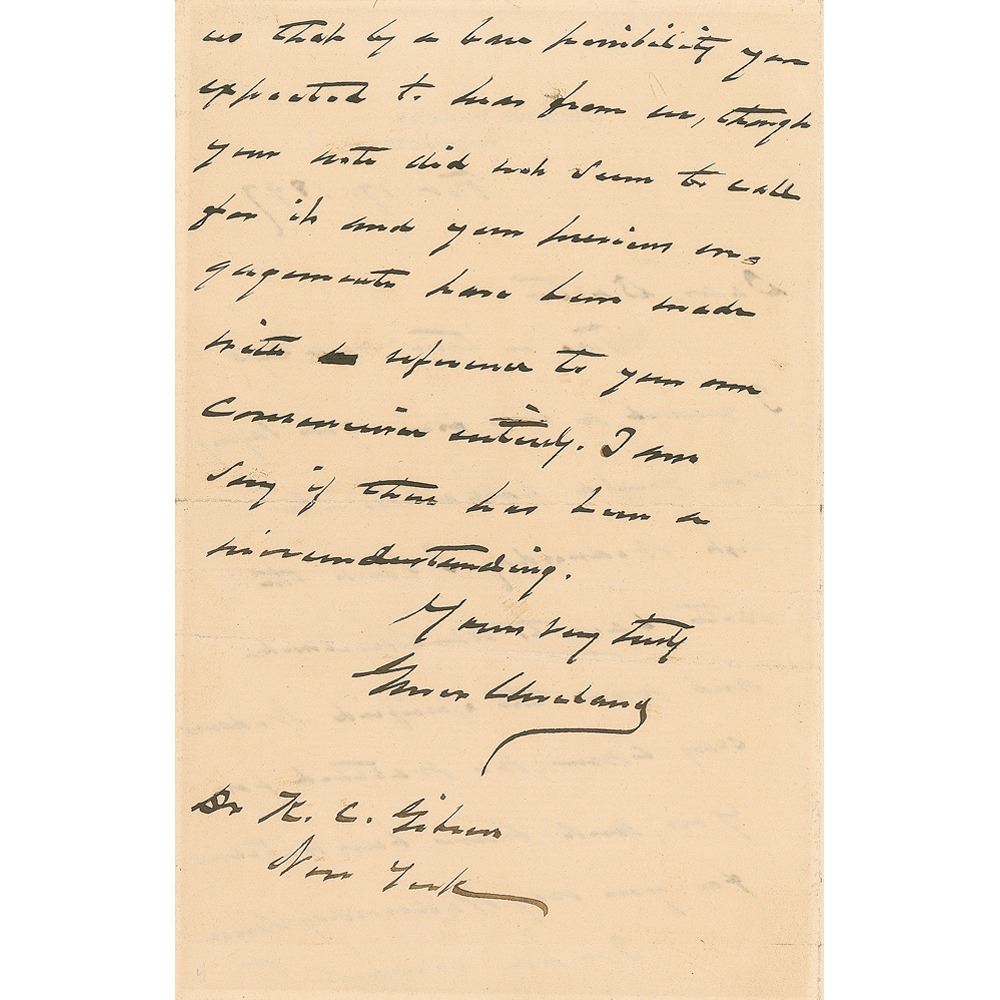 us that by a bare possibility you
expected to hear from me, though
your note did not seem to call
for it and your previous en=
gagements have been made
with reference to your own
convenience entirely. I am
sorry if there has been a
misunderstanding.
Yours very truly
Grover Cleveland
Dr K. C. Gibson
New York